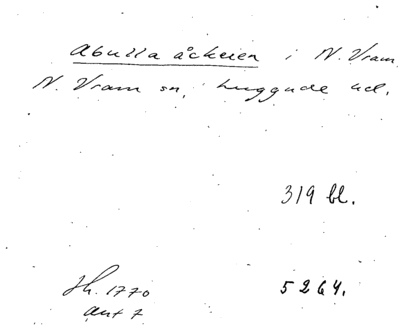 Abulla åckeren i N. Vram,
N. Vram sn, Luggude hd.
319 bl.
Jh. 1770 5264.
akt 7